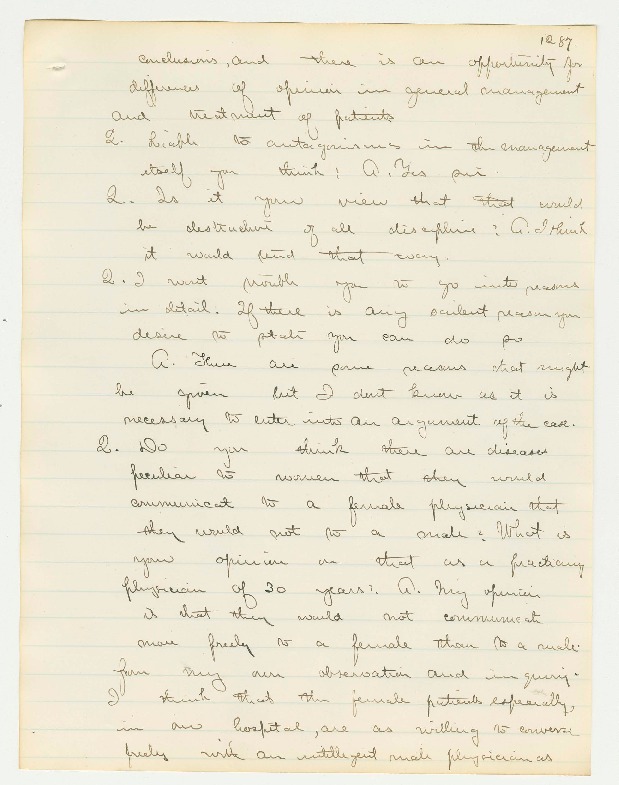 1287
conclusions, and there is an opportunity for
differences of opinion in general management
and treatment of patients
Q. Liable to antagonisms in the management
itself you think? A. Yes sir.
Q. Is it your view that that would
be destructive of all discipline? A. I think
it would tend that way.
Q. I wont trouble you to go into reasons
in detail. If there is any salient reason you
desire to state you can do so
A. There are some reasons that might
be given but I dont know as it is
necessary to enter into an argument of the case.
Q. Do you think there are diseases
peculiar to women that they would
communicate to a female physician that
they would not to a male? What is
your opinion on that as a practicing
physician of 30 years? A. My opinion
is that they would not communicate
more freely to a female than to a male.
from my own observation and inquiry.
I think that the female patients especially,
in our hospital, are as willing to converse
freely with an intelligent male physician as